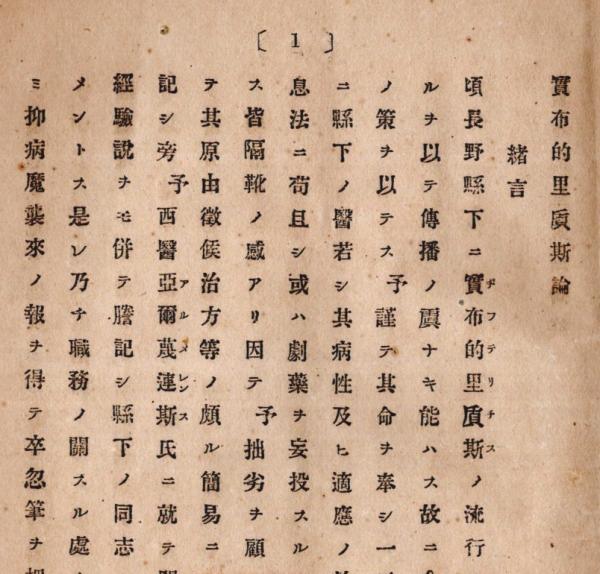 〔 1 〕
實布的里質斯論
緒言
頃長野縣下ニ實布的里質斯ノ流行
ヂフテリチス
ルヲ以テ傳播ノ虞ナキ能ハス故ニ
ノ策ヲ以テス予謹テ其命ヲ奉シ一
ニ縣下ノ醫若シ其病性及ヒ適應ノ
息法ニ苟且シ或ハ劇藥ヲ妄投スル
ス皆隔靴ノ感アリ因テ予拙劣ヲ顧
テ其原由徵候治方等ノ頗ル簡易ニ
記シ旁予西醫亞爾蔑連斯氏ニ就テ
アルメレンス
經驗說ヲモ併テ謄記シ縣下ノ同志
メントス是レ乃チ職務ノ關スル處
ミ抑病魔襲來ノ報ヲ得テ卒忽筆ヲ